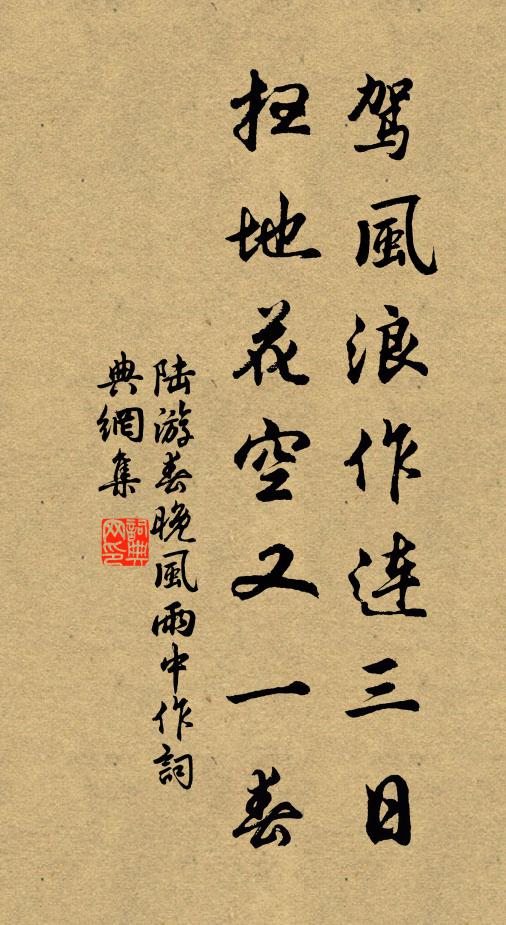 駕風浪作連三日
掃地花空又一春
陸游春晚風雨中作詞
典網集
詞典网印